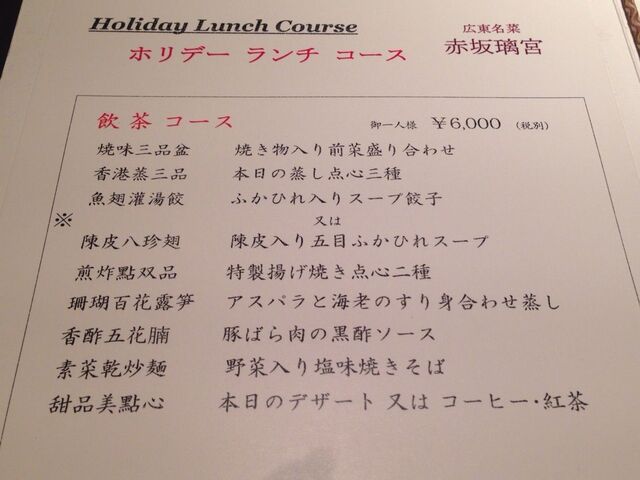 Holiday Lunch Course
ホリデー ランチ コース
広東名菜
赤坂璃宮
飲茶コース 御一人様 ￥6,000 (税別)
焼味三品盆 焼き物入り前菜盛り合わせ
香港蒸三品 本日の蒸し点心三種
魚翅灌湯餃 ふかひれ入りスープ餃子
※ 又は
陳皮八珍翅 陳皮入り五目ふかひれスープ
煎炸點双品 特製揚げ焼き点心二種
珊瑚百花露笋 アスパラと海老のすり身合わせ蒸し
香酢五花腩 豚ばら肉の黒酢ソース
素菜乾炒麺 野菜入り塩味焼きそば
甜品美點心 本日のデザート 又は コーヒー･紅茶